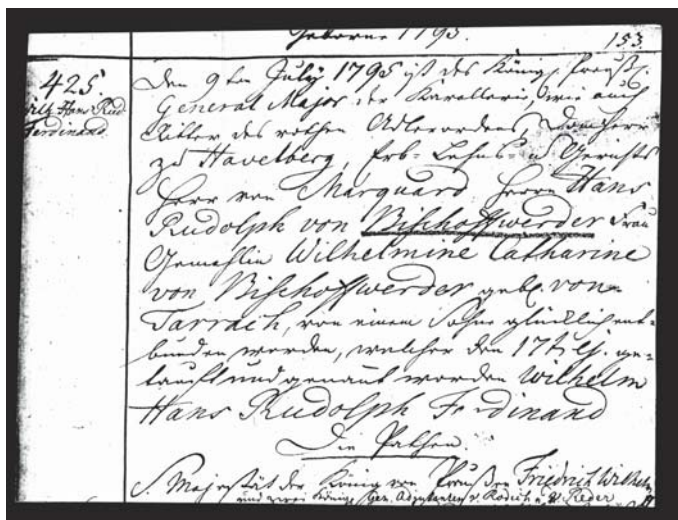 Geborne 1795.
153.
425.
Wilh. Hans Rud.
Ferdinand.
Den 9ten July 1795 ist des Königl. Preuß.
General Major der Kavallerie, wie auch
Ritter des rothen Adlerordens, Domherr
zu Havelberg, Erb- Lehns- u Gerichts
Herr von Marquard Herrn Hans
Rudolph von Bischoffwerder Frau
Gemahlin Wilhelmine Catharine
von Bischoffwerder geb. von
Tarrach, von einem Sohne glücklich ent-
bunden worden, welcher den 17t. ej. ge-
tauft und genant worden Wilhelm
Hans Rudolph Ferdinand
Die Pathen.
S. Majestät der König von Preußen Friedrich Wilhelm
und zwei Königl. Gen. Adjutanten v. Rodich u. v. Reder